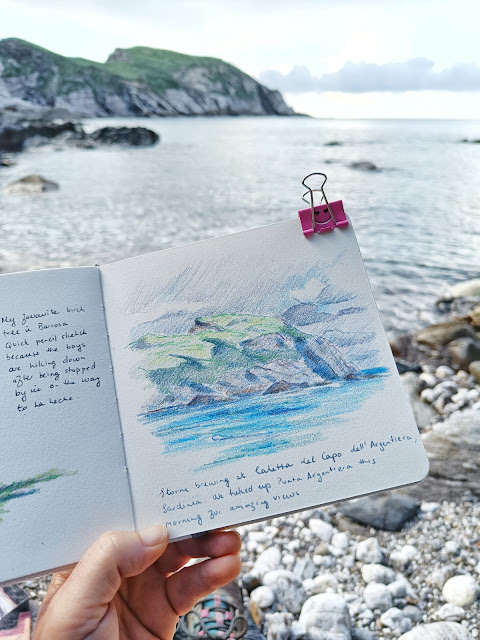 My favourite birch
tree in Barrosa
Quick pencil sketch
because the boys
are hiking down
after being stopped
by ice on the way
to La Leche.
Storm brewing at Caletta del Capo dell'Argentiera,
Sardinia. We hiked up Punta Argentiera this
morning for amazing views